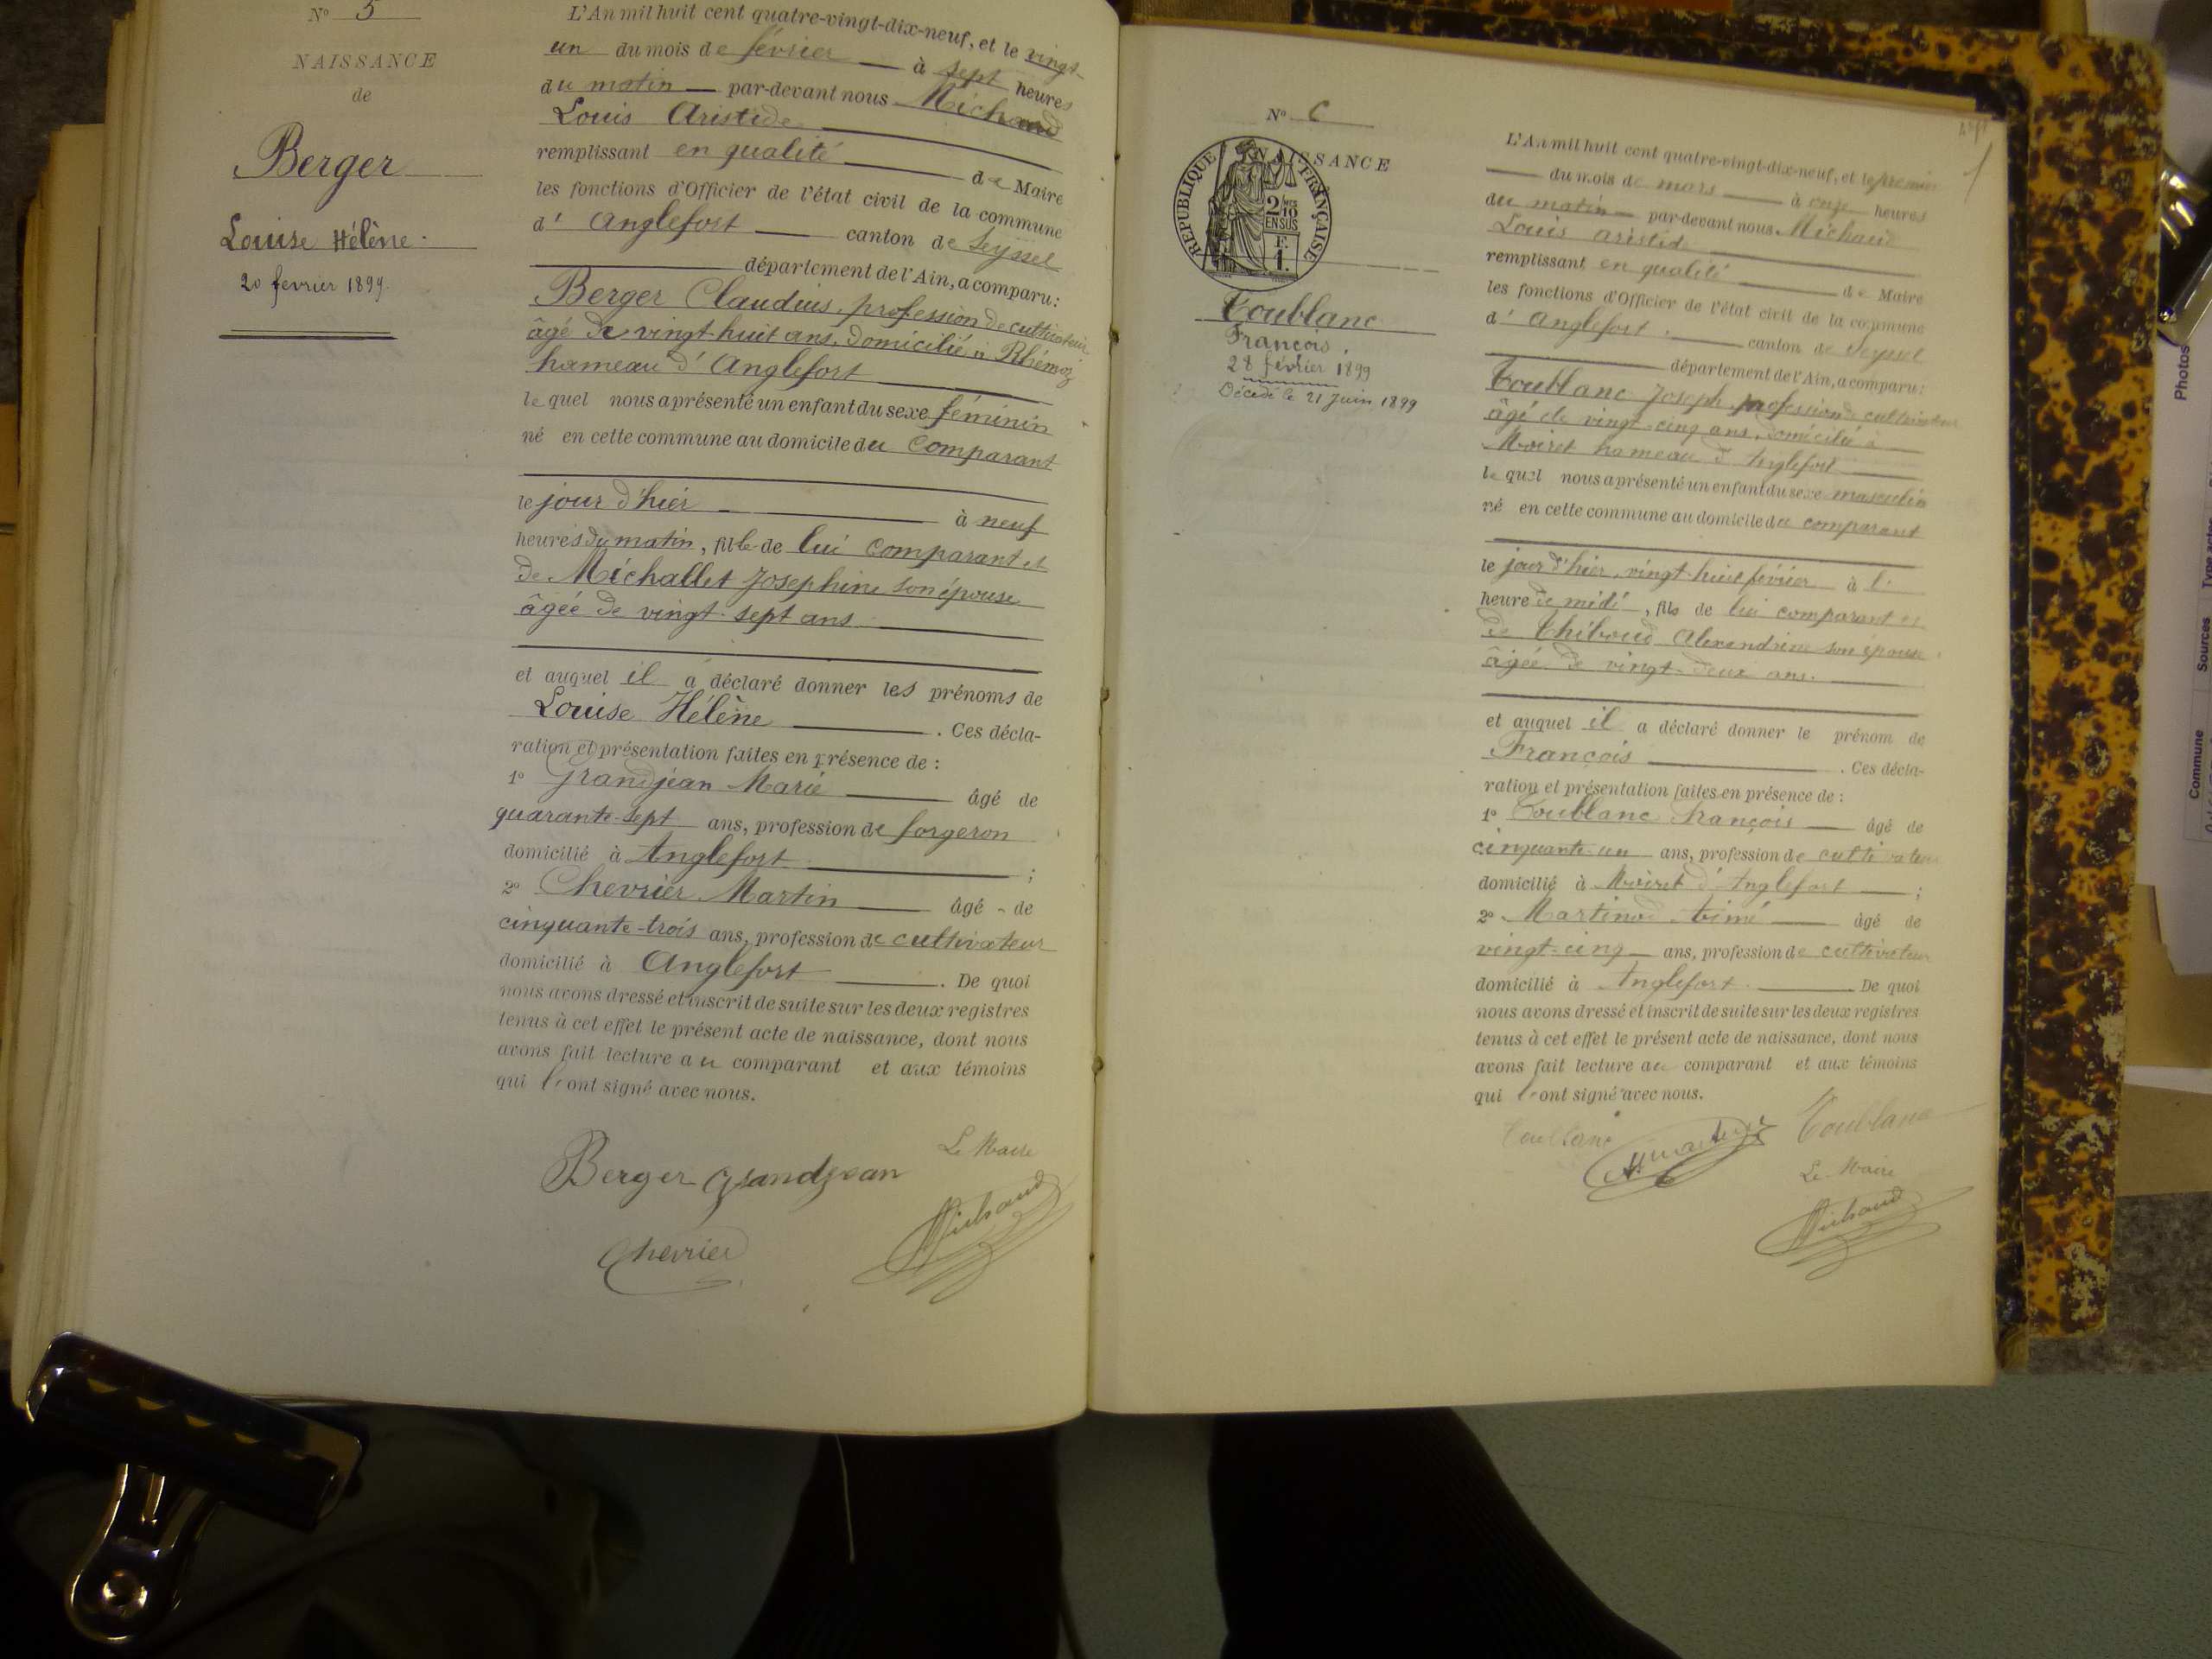 N° 5
NAISSANCE
de
Berger
Louise Hélène
20 fevrier 1899.
L'An mil huit cent quatre-vingt-dix-neuf, et le vingt-
un du mois de février à sept heures
du matin par-devant nous Michaud
Louis Aristide
remplissant en qualité de Maire
les fonctions d'Officier de l'état civil de la commune
d' Anglefort canton de Seyssel
département de l'Ain, a comparu:
Berger Claudius, profession de cultivateur
âgé de vingt-huit ans, domicilié à Rhémoz
hameau d'Anglefort
lequel nous a présenté un enfant du sexe féminin
né en cette commune au domicile du Comparant
le jour d'hier à neuf
heures du matin, fille de lui comparant et
de Michallet Josephine son épouse
âgée de vingt-sept ans
et auquel il a déclaré donner les prénoms de
Louise Hélène . Ces décla-
ration et présentation faites en présence de :
1° Grandjean Marie âgé de
quarante-sept ans, profession de forgeron
domicilié à Anglefort ;
2° Chevrier Martin âgé de
cinquante-trois ans, profession de cultivateur
domicilié à Anglefort . De quoi
nous avons dressé et inscrit de suite sur les deux registres
tenus à cet effet le présent acte de naissance, dont nous
avons fait lecture au comparant et aux témoins
qui l'ont signé avec nous.
Le Maire
Berger Grandjean
Michaud
Chevrier
N° 6
NAISSANCE
RÉPUBLIQUE FRANÇAISE
2/10
EN SUS
F.
1.
Toublanc
François.
28 février 1899
Décédé le 21 Juin 1899
L'An mil huit cent quatre-vingt-dix-neuf, et le premier
du mois de mars à onze heures
du matin par-devant nous Michaud
Louis Aristide
remplissant en qualité de Maire
les fonctions d'Officier de l'état civil de la commune
d' Anglefort canton de Seyssel
département de l'Ain, a comparu:
Toublanc Joseph, profession de cultivateur
âgé de vingt-cinq ans, domicilié à
Moiret hameau d'Anglefort
lequel nous a présenté un enfant du sexe masculin
né en cette commune au domicile du comparant
le jour d'hier, vingt-huit février à l'
heure de midi, fils de lui comparant et
de Thiboud Alexandrine son épouse
âgée de vingt-deux ans.
et auquel il a déclaré donner le prénom de
François . Ces décla-
ration et présentation faites en présence de :
1° Toublanc François âgé de
cinquante-un ans, profession de cultivateur
domicilié à Moiret d'Anglefort ;
2° Martinod Aimé âgé de
vingt-cinq ans, profession de cultivateur
domicilié à Anglefort. De quoi
nous avons dressé et inscrit de suite sur les deux registres
tenus à cet effet le présent acte de naissance, dont nous
avons fait lecture au comparant et aux témoins
qui l'ont signé avec nous.
Toublanc Toublanc
Le Maire
Michaud
Photos
Sources
Commune